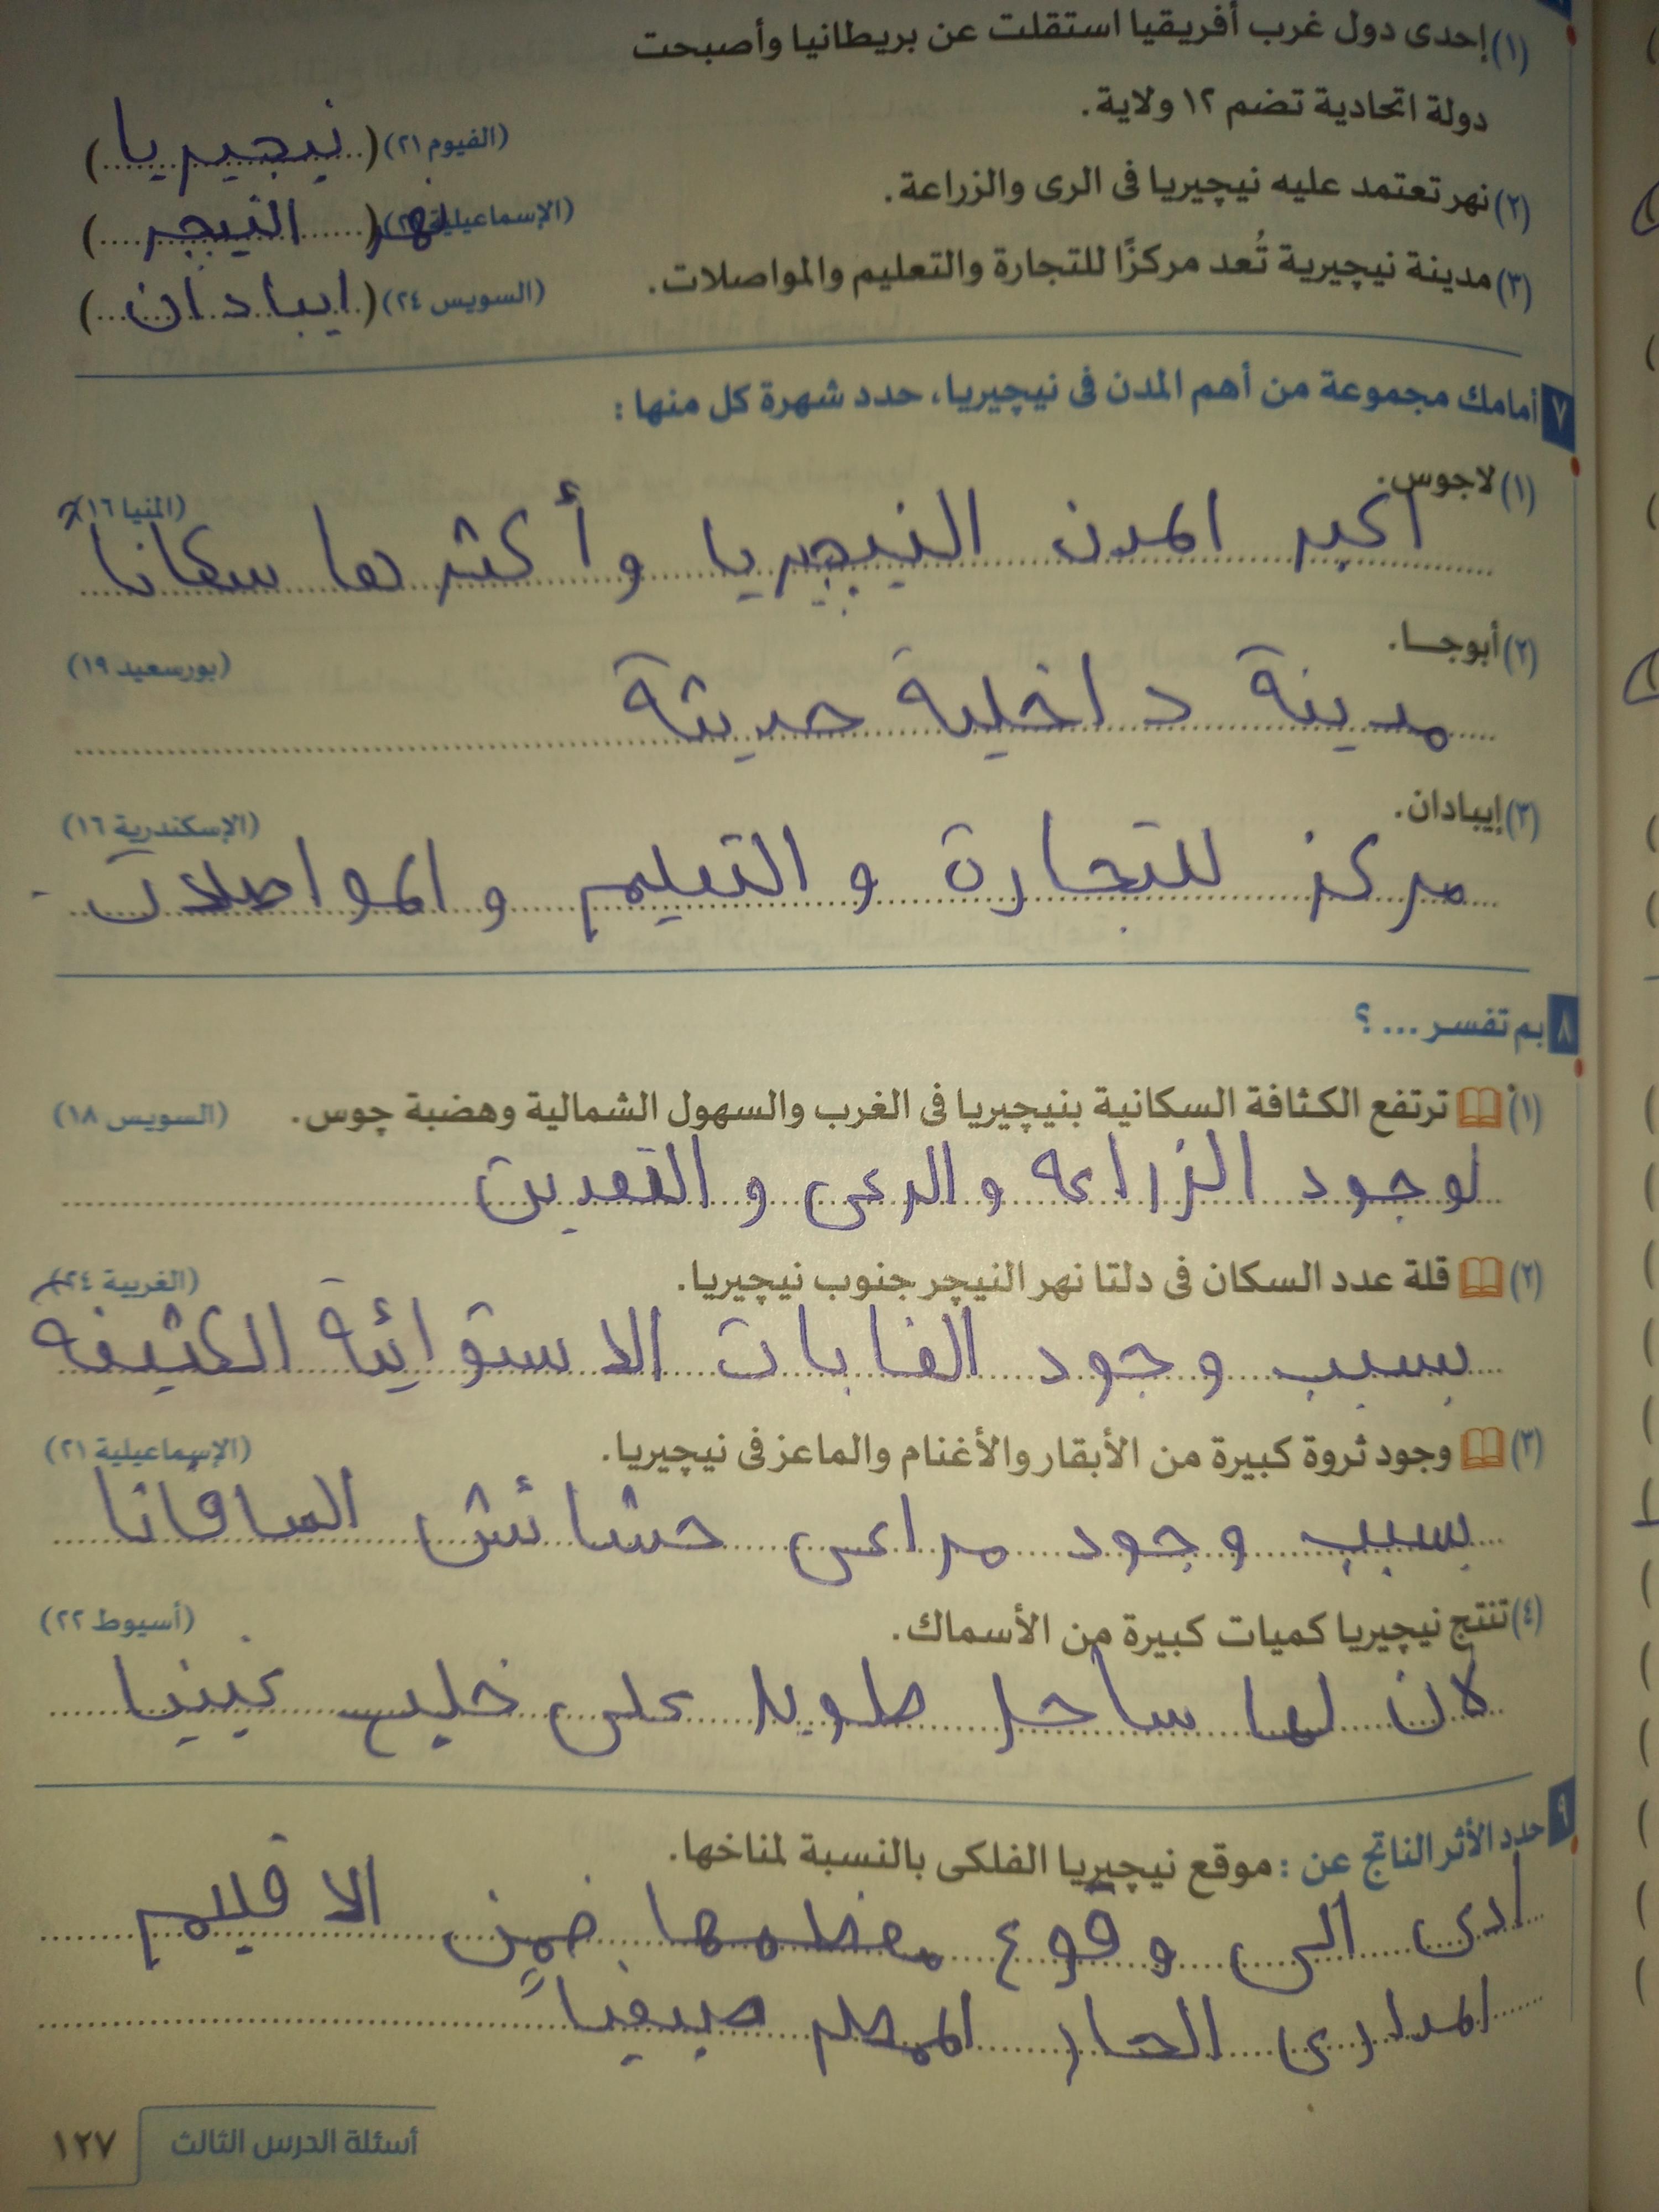 (١) إحدى دول غرب أفريقيا استقلت عن بريطانيا وأصبحت
دولة اتحادية تضم ١٢ ولاية.
(الفيوم ٢١) (نيجيريا)
(٢) نهر تعتمد عليه نيچيريا فى الرى والزراعة.
(الإسماعيلية) (نهر النيجر)
(٣) مدينة نيچيرية تُعد مركزًا للتجارة والتعليم والمواصلات.
(السويس ٢٤) (ايبادان)
٧ أمامك مجموعة من أهم المدن فى نيچيريا، حدد شهرة كل منها :
(١) لاجوس.
(المنيا ١٦)
اكبر المدن النيجيريا وأكثرها سكانا
(٢) أبوجا.
(بورسعيد ١٩)
مدينة داخلية حديثة
(٣) إيبادان.
(الإسكندرية ١٦)
مركز للتجارة و التعليم و المواصلات
٨ بم تفسر ... ؟
(١) ترتفع الكثافة السكانية بنيچيريا فى الغرب والسهول الشمالية وهضبة چوس. (السويس ١٨)
لوجود الزراعه والرعى و التعدين
(٢) قلة عدد السكان فى دلتا نهر النيچر جنوب نيچيريا. (الغربية ٢٤)
بسبب وجود الغابات الاستوائية الكثيفه
(٣) وجود ثروة كبيرة من الأبقار والأغنام والماعز فى نيچيريا. (الإسماعيلية ٢١)
بسبب وجود مراعى حشائش السافانا
(٤) تنتج نيچيريا كميات كبيرة من الأسماك. (أسيوط ٢٢)
لان لها ساحل طويل على خليج غينيا
٩ حدد الأثر الناتج عن : موقع نيچيريا الفلكى بالنسبة لمناخها.
ادى الى وقوع معظمها ضمن الاقليم
المدارى الحار الممطر صيفياً
أسئلة الدرس الثالث ١٢٧